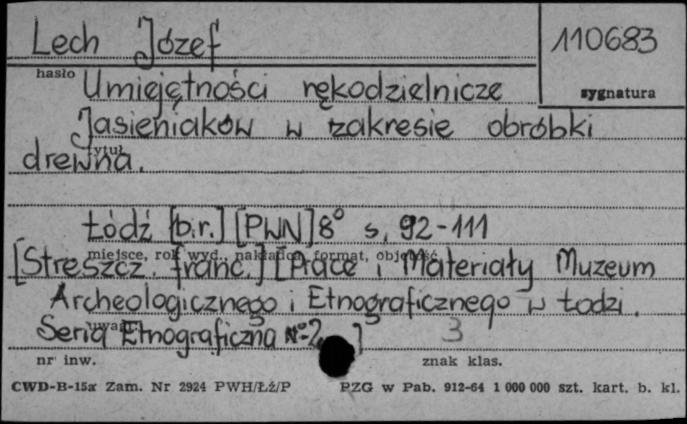 Lech Józef
110683
hasło
sygnatura
Umiejętności rękodzielnicze
Jasieniaków w zakresie obróbki
tytuł
drewna.
Łódź [b.r.] [PWN] 8° s. 92-111
miejsce, rok wyd., nakładca, format, objętość
[Streszcz. franc.] [Prace i Materiały Muzeum
Archeologicznego i Etnograficznego w Łodzi.
uwagi
Seria Etnograficzna N° 2 ] 3
nr inw.
znak klas.
CWD-B-15a Zam. Nr 2924 PWH/Łź/P PZG w Pab. 912-64 1 000 000 szt. kart. b. kl.